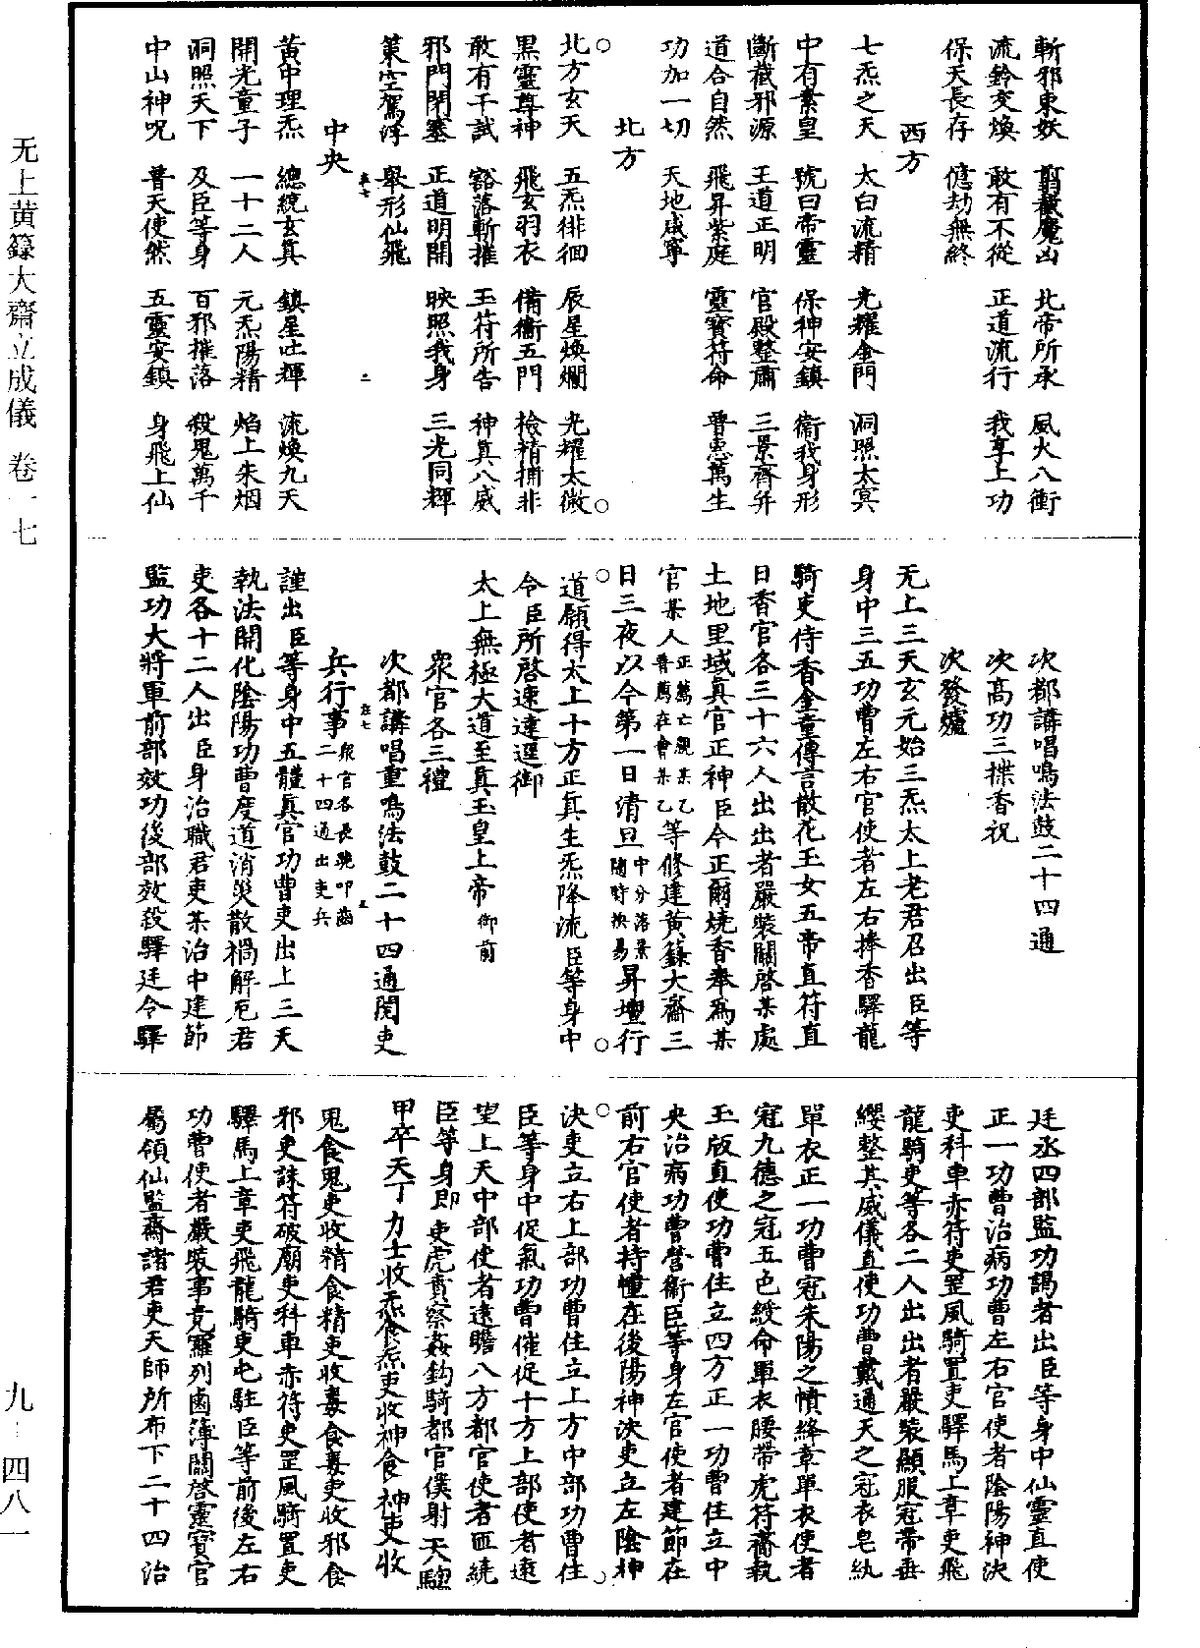 斬邪東妖　翦截魔凶　北帝所承　風火八衝
流鈴交煥　敢有不從　正道流行　我享上功
保天長存　億劫無終
西方
七炁之天　太白流精　光耀金門　洞照太冥
中有素皇　號曰帝靈　保神安鎮　衛我身形
斷截邪源　王道正明　官殿整肅　三景齊幷
道合自然　飛昇紫庭　靈寶符命　普惠萬生
功加一切　天地咸寧
北方
北方玄天　五炁徘徊　辰星煥爛　光耀太微
黑靈尊神　飛玄羽衣　備衞五門　檢精捕非
敢有干試　豁落斬摧　玉符所告　神真八威
邪門閉塞　正道明開　映照我身　三光同輝
策空駕浮　舉形仙飛
中央
黃中理炁　總統玄真　鎮星吐輝　流煥九天
開光童子　一十二人　元炁陽精　焰上朱烟
洞照天下　及臣等身　百邪摧落　殺鬼萬千
中山神呪　普天使然　五靈安鎮　身飛上仙
次都講唱鳴法鼓二十四通
次高功三揲香祝
次發爐
无上三天玄元始三炁太上老君召出臣等
身中三五功曹左右官使者左右捧香驛龍
騎吏侍香金童傳言散花玉女五帝直符直
日香官各三十六人出出者嚴裝關啓某處
土地里域真官正神臣今正爾燒香奉為某
官某人正薦亡親某乙普薦在會某乙等修建黃籙大齋三
日三夜以今第一日清旦中分落景隨時換易昇壇行
道願得太上十方正真生炁降流臣等身中
令臣所啓速達逕御
太上無極大道至真玉皇上帝御前
眾官各三禮
次都講唱重鳴法鼓二十四通閱吏
兵行事眾官各長跪叩齒二十四通出吏兵
謹出臣等身中五體真官功曹吏出上三天
執法開化陰陽功曹度道消災散禍解厄君
吏各十二人出臣身治職君吏某治中建節
監功大將軍前部效功後部效殺驛廷令驛
廷丞四部監功謁者出臣等身中仙靈直使
正一功曹治病功曹左右官使者陰陽神決
吏科車赤符吏罡風騎置吏驛馬上章吏飛
龍騎吏等各二人出出者嚴裝顯服冠帶垂
纓整其威儀直使功曹戴通天之冠衣皂紈
單衣正一功曹冠朱陽之幘絳章單衣使者
冠九德之冠五色綬命單衣腰帶虎符齎執
玉版直使功曹住立四方正一功曹住立中
央治病功曹營衞臣等身左官使者建節在
前右官使者持幢在後陽神決吏立左陰神
決吏立右上部功曹住立上方中部功曹住
臣等身中促氣功曹催促十方上部使者遠
望上天中部使者遠瞻八方都官使者匝繞
臣等身即吏虎賁察姦鈎騎都官僕射天騶
甲卒天丁力士收炁食炁吏收神食神吏收
鬼食鬼吏收精食精吏收毒食毒吏收邪食
邪吏誅符破廟吏科車赤符吏罡風騎置吏
驛馬上章吏飛龍騎吏屯駐臣等前後左右
功曹使者嚴裝事竟羅列鹵簿關啓靈寶官
屬領仙監齋諸君吏天師所布下二十四治
无上黃籙大齋立成儀　卷一七
九－四八一